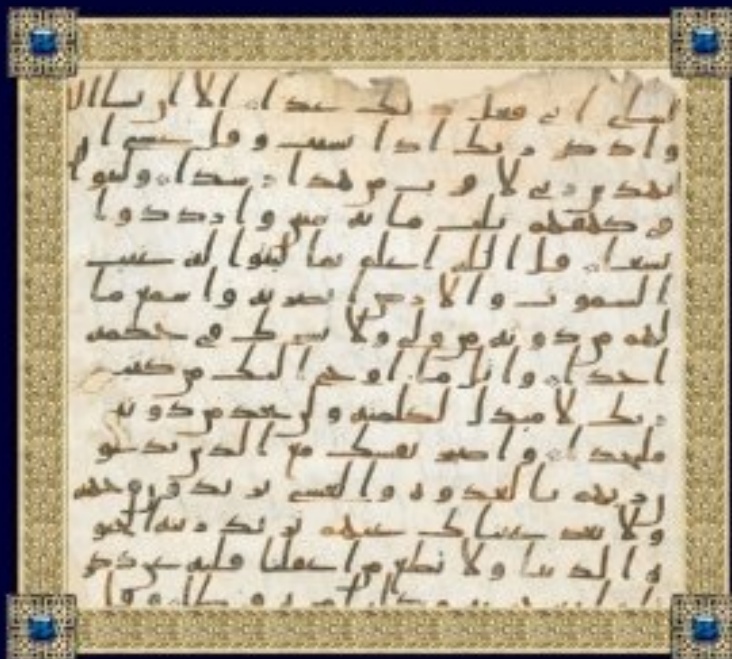 لشاى انى فعل ذلك غدا الا ان يشا ال
واذكر ربك اذا نسيت وقل عسى ان
يهدين ربى لاقرب من هذا رشدا ولبثوا
فى كهفهم ثلث مائه سنين وازددوا
تسعا قل الله اعلم بما لبثوا له غيب
السموت والارض ابصر به واسمع ما
لهم من دونه من ولى ولا يشرك فى حكمه
احدا واتل ما اوحى اليك من كتب
ربك لا مبدل لكلمته ولن تجد من دونه
ملتحدا واصبر نفسك مع الذين يدعو
ن ربهم بالغدوه والعشى يريدون وجهه
ولا تعد عيناك عنهم تريد زينه الحيو
ه الدنيا ولا تطع من اغفلنا قلبه عن ذكر